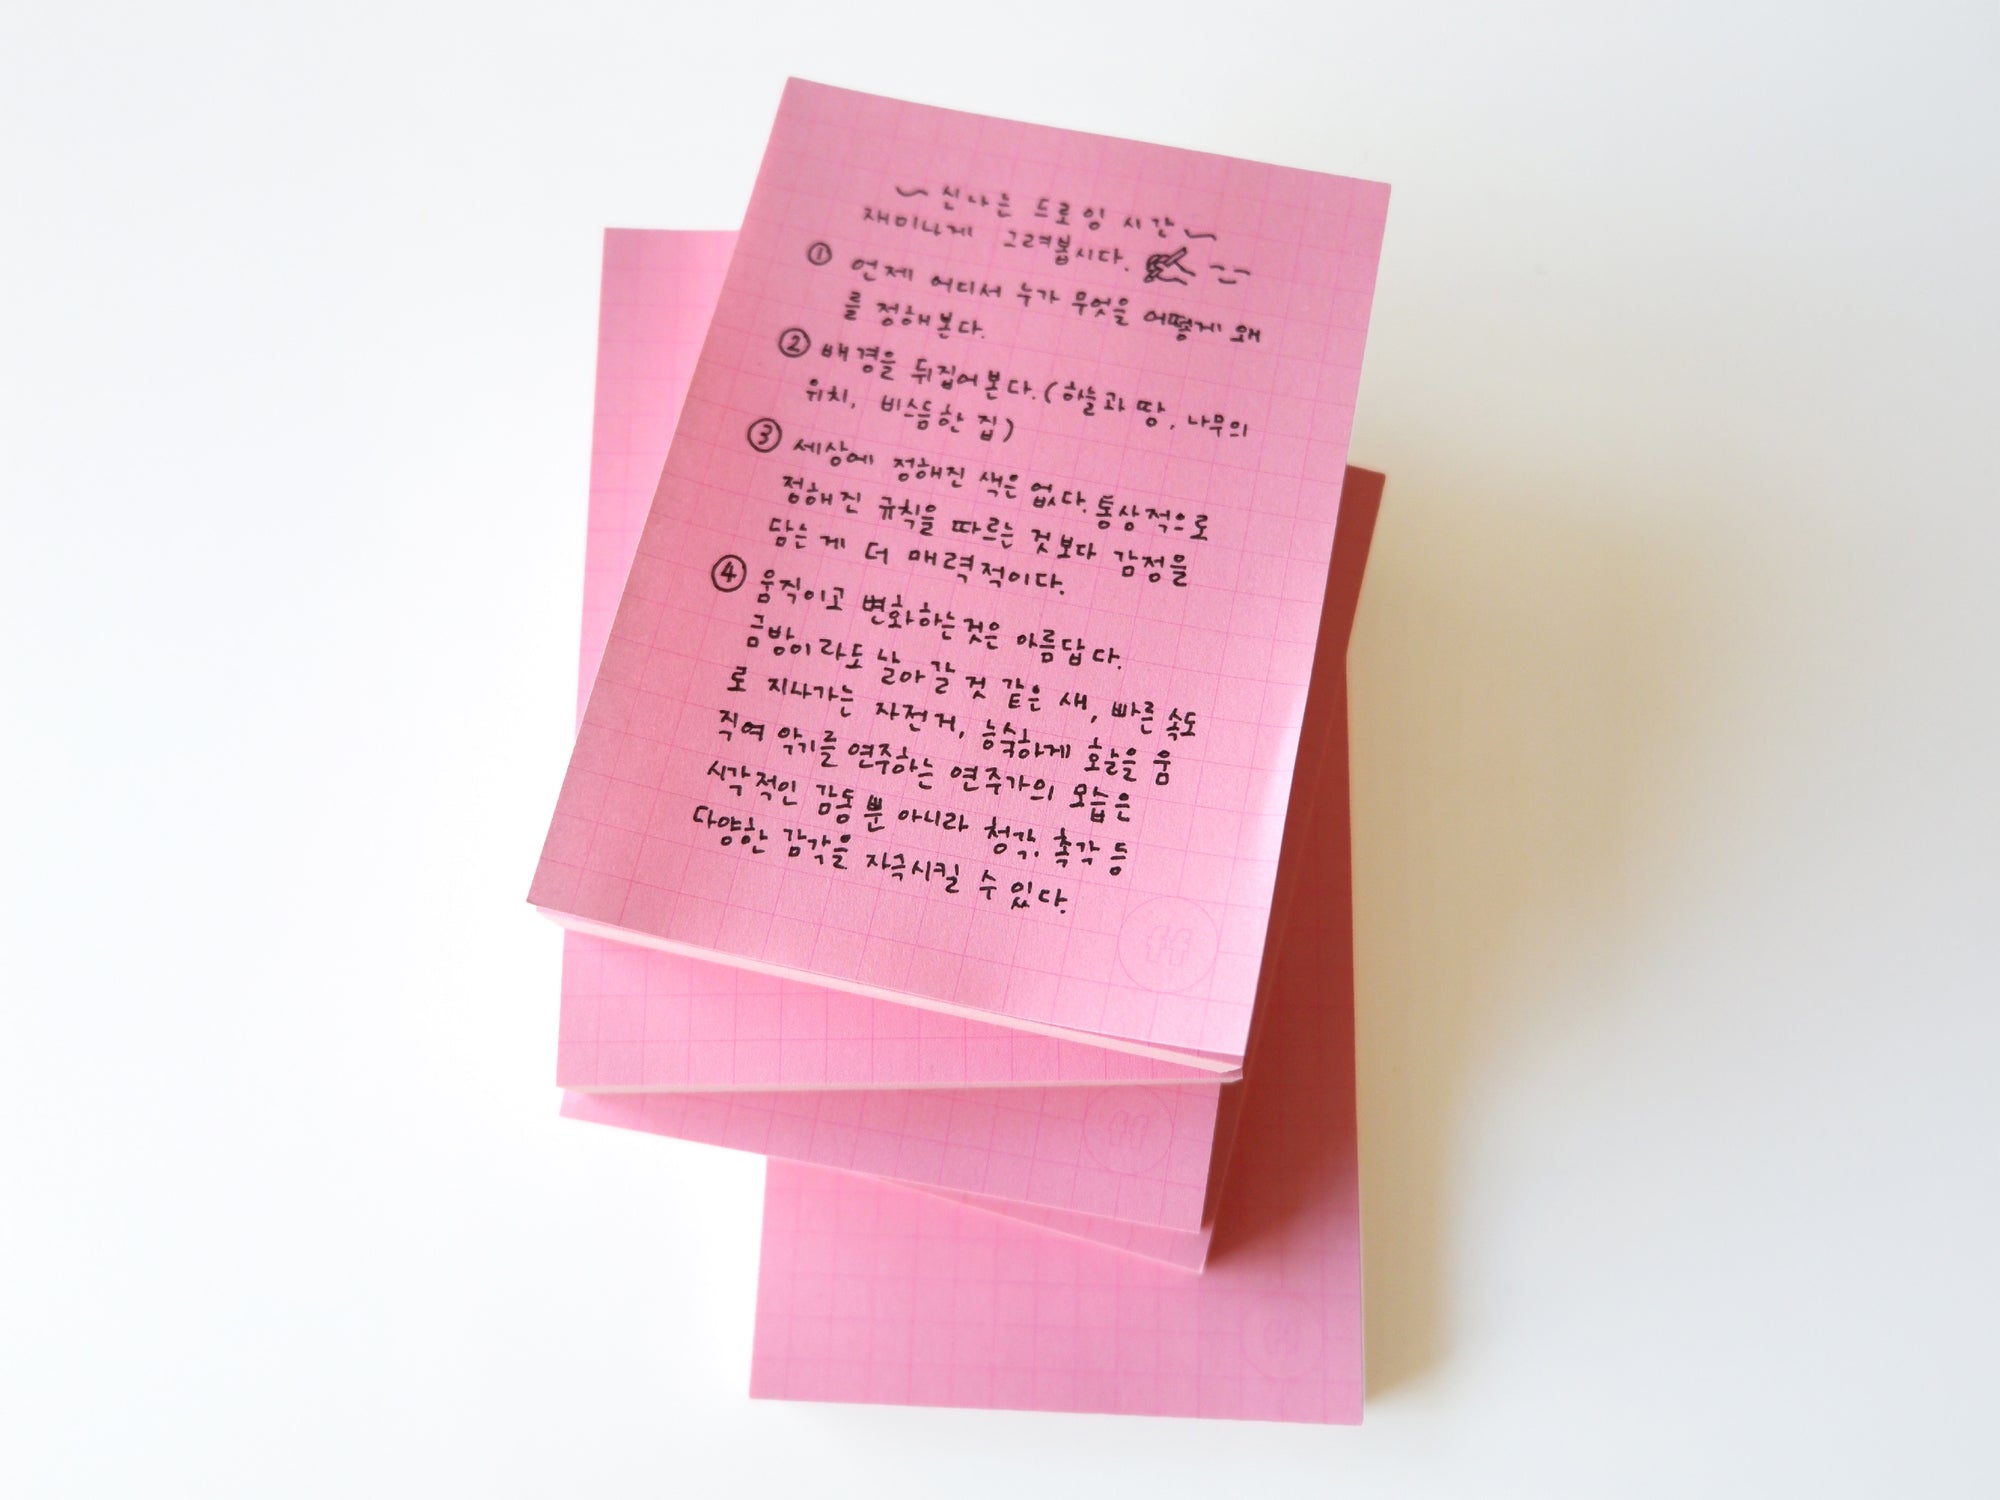 ~ 신나는 드로잉 시간 ~
재미나게 그려봅시다.
① 언제 어디서 누가 무엇을 어떻게 왜
를 정해본다.
② 배경을 뒤집어본다. (하늘과 땅, 나무의
위치, 비스듬한 집)
③ 세상에 정해진 색은 없다. 통상적으로
정해진 규칙을 따르는 것보다 감정을
담는게 더 매력적이다.
④ 움직이고 변화하는것은 아름답다.
금방이라도 날아갈 것 같은 새, 빠른 속도
로 지나가는 자전거, 능숙하게 활을 움
직여 악기를 연주하는 연주가의 모습은
시각적인 감동 뿐 아니라 청각, 촉각 등
다양한 감각을 자극시킬 수 있다.